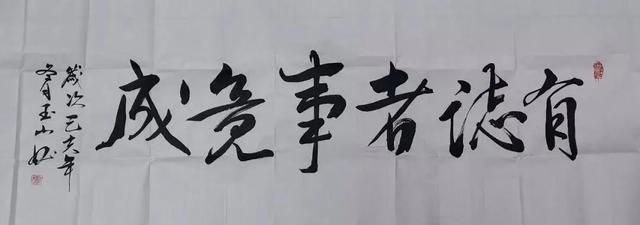 有誌者事竟成
歲次己亥年
玉山书